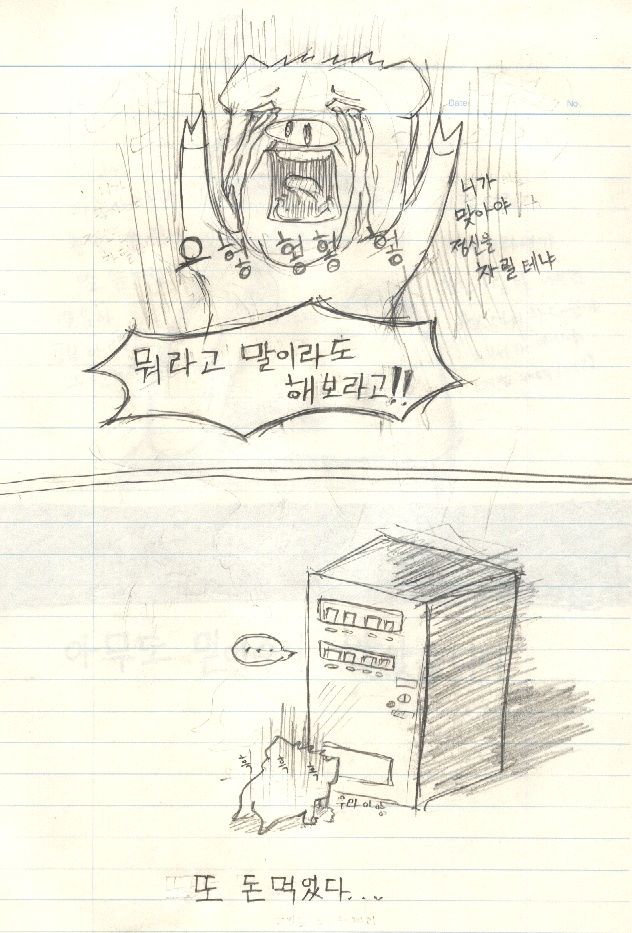 Date
No.
니가
맞아야
정신을
차릴 테냐
으헝 헝헝 헝
뭐라고 말이라도
해보라고!!
....
우와아앙
또 돈 먹었다...